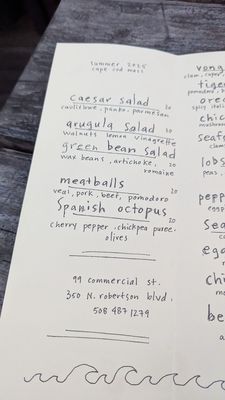 summer 2025
cape cod mass
caesar salad 20
cauliflower, panko, parmesan
arugula salad 20
walnuts lemon vinagrette
green bean salad
wax beans, artichoke, 20
romaine
meatballs 20
veal, pork, beef, pomodoro
Spanish octopus
20
cherry pepper, chickpea puree,
olives
99 commercial st.
350 N. robertson blvd,
508 487 1279
vong
clam, caper,
tiger
pomodoro,
orec
spicy ital
chic
mushroom
seafo
clam
lobs
peas,
pepp
eggp
sea
c
egg
m
chic
m
be
a